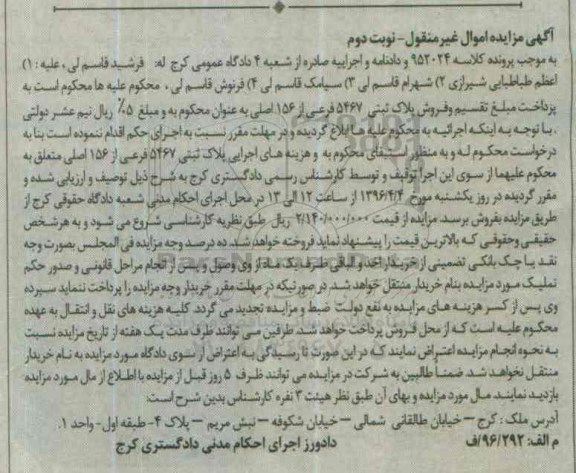 آگهی مزایده اموال غیر منقول- نوبت دوم
به موجب پرونده کلاسه ۹۵۲۰۲۴ و دادنامه و اجراییه صادره از شعبه ۴ دادگاه عمومی کرج له: فرشید قاسم لی ، علیه : ۱)
اعظم طباطبایی شیرازی ۲) شهرام قاسم لی ۳) سیامک قاسم لی ۴) فرنوش قاسم لی ، محکوم علیه ها محکوم است به
پرداخت مبلغ تقسیم وفروش پلاک ثبتی ۵۴۶۷ فرعی از ۱۵۶ اصلی به عنوان محکوم به و مبلغ ۵٪ ریال نیم عشر دولتی
. با توجه به اینکه اجرائیه به محکوم علیه ها ابلاغ گردیده و در مهلت مقرر نسبت به اجرای حکم اقدام ننموده است بنا به
درخواست محکوم له و به منظور استیفای محکوم به و هزینه های اجرایی پلاک ثبتی ۵۴۶۷ فرعی از ۱۵۶ اصلی متعلق به
محکوم علیهما از سوی این اجرا توقیف و توسط کارشناس رسمی دادگستری کرج به شرح ذیل توصیف و ارزیابی شده و
مقرر گردیده در روز یکشنبه مورخ ۱۳۹۶/۴/۴ از ساعت ۱۲ الی ۱۳ در محل اجرای احکام مدنی شعبه دادگاه حقوقی کرج از
طریق مزایده بفروش برسد. مزایده از قیمت ۲/۱۴۰/۰۰۰/۰۰۰ ریال طبق نظریه کارشناسی شروع می شود و به هر شخص
حقیقی وحقوقی که بالاترین قیمت را پیشنهاد نماید فروخته خواهد شد. ده درصد وجه مزایده فی المجلس بصورت وجه
نقد یا چک بانکی تضمینی از خریدار اخذ و الباقی ظرف یک ماه از وی وصول و پس از انجام مراحل قانونی و صدور حکم
تملیک مورد مزایده بنام خریدار منتقل خواهد شد. در صورتیکه در مهلت مقرر خریدار وجه مزایده را پرداخت ننماید سپرده
وی پس از کسر هزینه های مزایده به نفع دولت ضبط و مزایده تجدید می گردد. کلیه هزینه های نقل و انتقال به عهده
محکوم علیه است که از محل فروش پرداخت خواهد شد. طرفین می توانند ظرف مدت یک هفته از تاریخ مزایده نسبت
به نحوه انجام مزایده اعتراض نمایند که در این صورت تا رسیدگی به اعتراض از سوی دادگاه مورد مزایده به نام خریدار
منتقل نخواهد شد. ضمنا طالبین به شرکت در مزایده می توانند ظرف ۵ روز قبل از مزایده با اطلاع از مال مورد مزایده
بازدید نمایند. مال مورد مزایده و بهای آن طبق نظر هیئت ۳ نفره کارشناس بدین شرح است:
آدرس ملک : کرج – خیابان طالقانی شمالی – خیابان شکوفه – نبش مریم – پلاک ۴- طبقه اول- واحد ۱.
م الف: ۹۶/۲۹۲/ف دادورز اجرای احکام مدنی دادگستری کرج